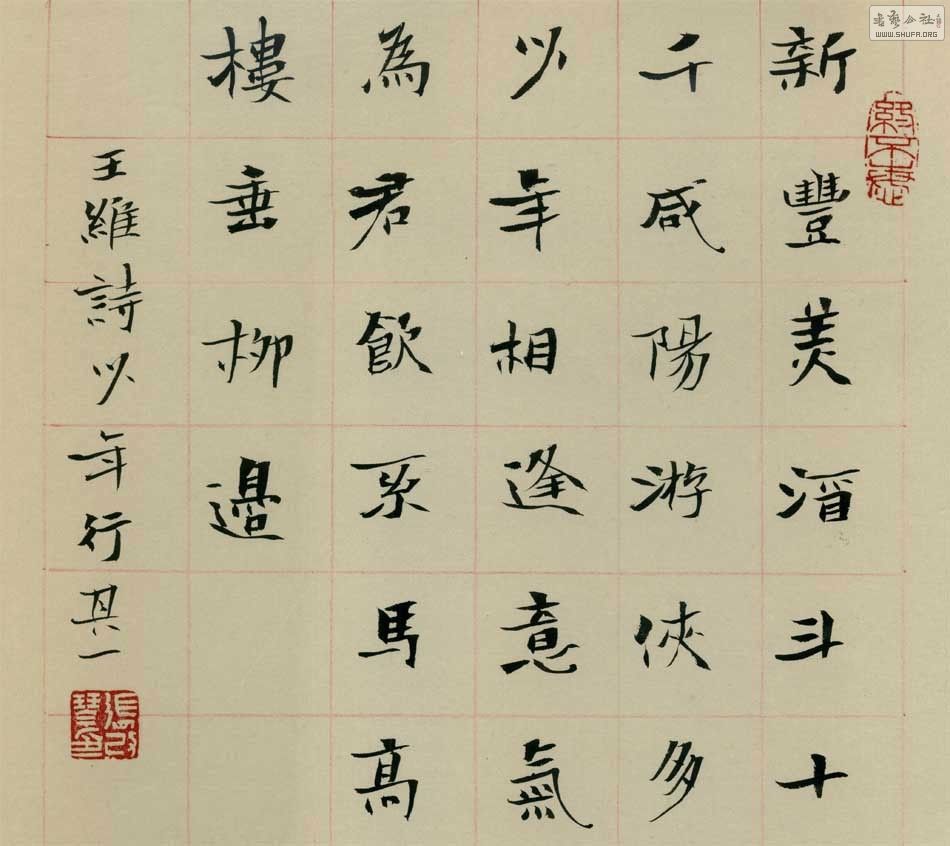 新豐美酒斗十
千咸陽游俠多
少年相逢意氣
為君飲系馬高
樓垂柳邊
王維詩少年行其一
书艺公社
WWW.SHUFA.ORG